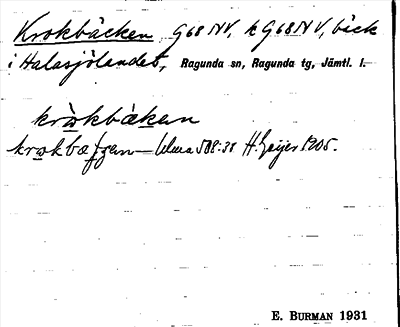 Krokbäcken G 68 NV, k G 68 N V, bäck
i Halasjölandet, Ragunda sn, Ragunda tg, Jämtl. l.
kròkbäken
krokbæggen — Ulma 588:38 H. Geijer 1905.
E. BURMAN 1931